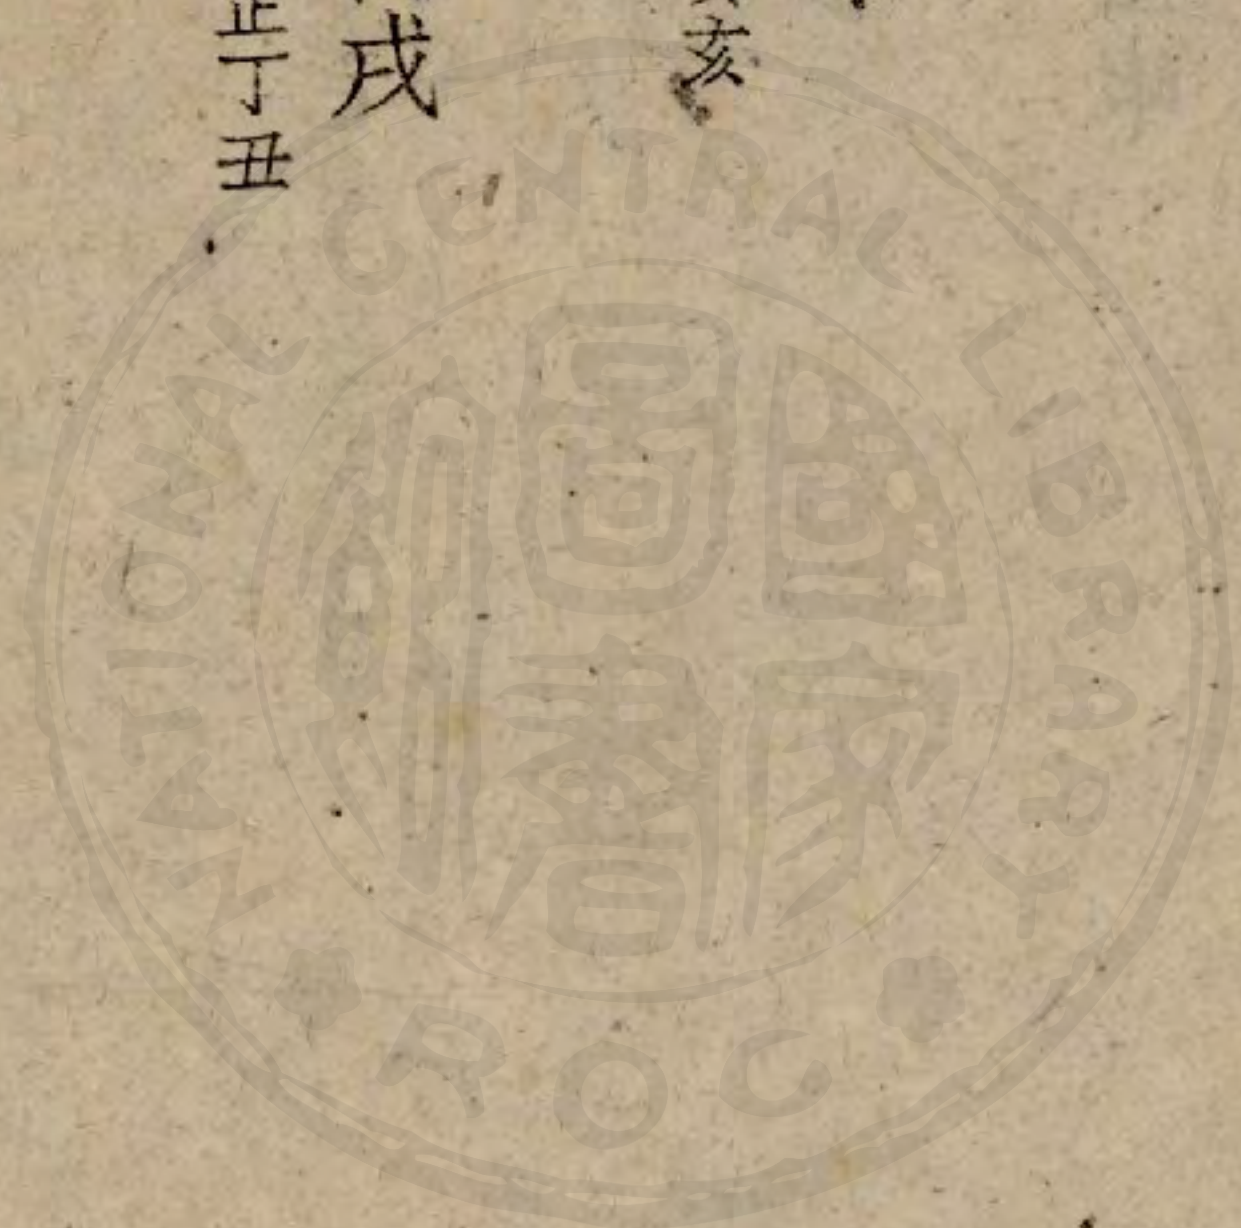 亥
戌
正丁丑
NATIONAL CENTRAL LIBRARY
ROC
國家圖書館